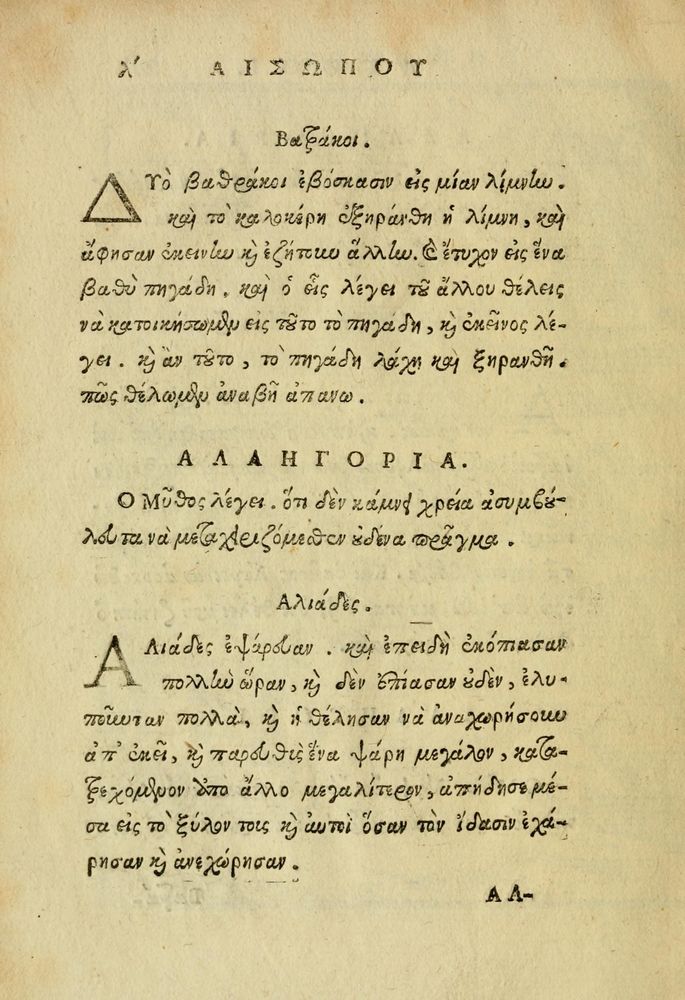 λʹ ΑΙΣΩΠΟΥ
Βαθράκοι.
ΔΥὸ βαθράκοι ἐβόσκασιν εἰς μίαν λίμνην.
καὶ τὸ καλοκέρη ἐξηράνθη ἡ λίμνη, καὶ
ἄφησαν ἐκεινὴν καὶ ἐζήτουν ἄλλην. Καὶ ἔτυχον εἰς ἕνα
βαθὺ πηγάδη. καὶ ὁ εἷς λέγει τοῦ ἄλλου θέλεις
νὰ κατοικήσωμεν εἰς τοῦτο τὸ πηγάδη, καὶ ἐκεῖνος λέ-
γει. καὶ ἂν τοῦτο, τὸ πηγάδη λάχη καὶ ξηρανθῆ.
πῶς θέλωμεν ἀναβῆ ἀπάνω.
ΑΛΛΗΓΟΡΙΑ.
Ο Μῦθος λέγει. ὅτι δὲν κάμνει χρεία ἀσυμβού-
λευτα νὰ μεταχειριζόμεθεν οὐδένα πρᾶγμα.
Αλιάδες.
ΑΛιάδες ἐψάρευαν. καὶ ἐπειδὴ ἐκόπιασαν
πολλὴν ὥραν, καὶ δὲν ἔπιασαν οὐδὲν, ἐλυ-
ποῦνταν πολλὰ, καὶ ἠθέλησαν νὰ ἀναχωρήσουν
ἀπ' ἐκεῖ, καὶ παρευθὶς ἕνα ψάρη μεγάλον, κατα-
τρεχόμενον ὑπὸ ἄλλο μεγαλίτερον, ἀπήδησε μέ-
σα εἰς τὸ ξύλον τοις καὶ αὐτοὶ ὅσαν τὸν ἴδασιν ἐχά-
ρησαν καὶ ἀνεχώρησαν.
ΑΛ-